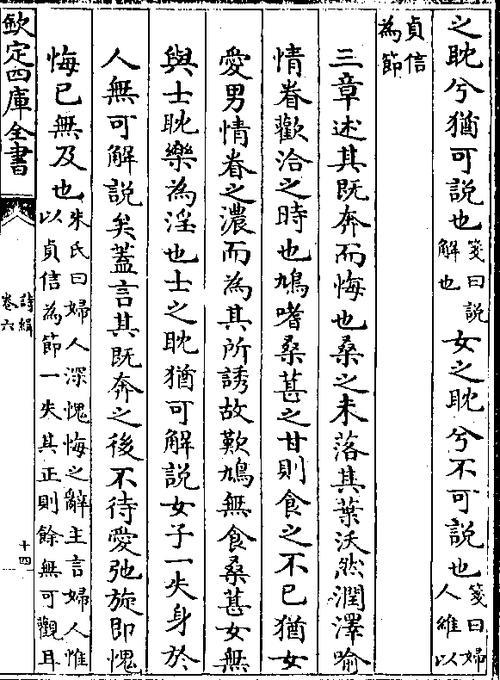 之耽兮猶可說也箋曰說解也女之耽兮不可說也箋曰婦人維以
貞信為節
三章述其既奔而悔也桑之未落其葉沃然潤澤喻
情眷歡洽之時也鳩嗜桑葚之甘則食之不已猶女
愛男情眷之濃而為其所誘故歎鳩無食桑葚女無
與士耽樂為淫也士之耽猶可解說女子一失身於
人無可解說矣蓋言其既奔之後不待愛弛旋即愧
悔已無及也朱氏曰婦人深愧悔之辭主言婦人惟以貞信為節一失其正則餘無可觀耳
欽定四庫全書
詩緝
卷六
十四